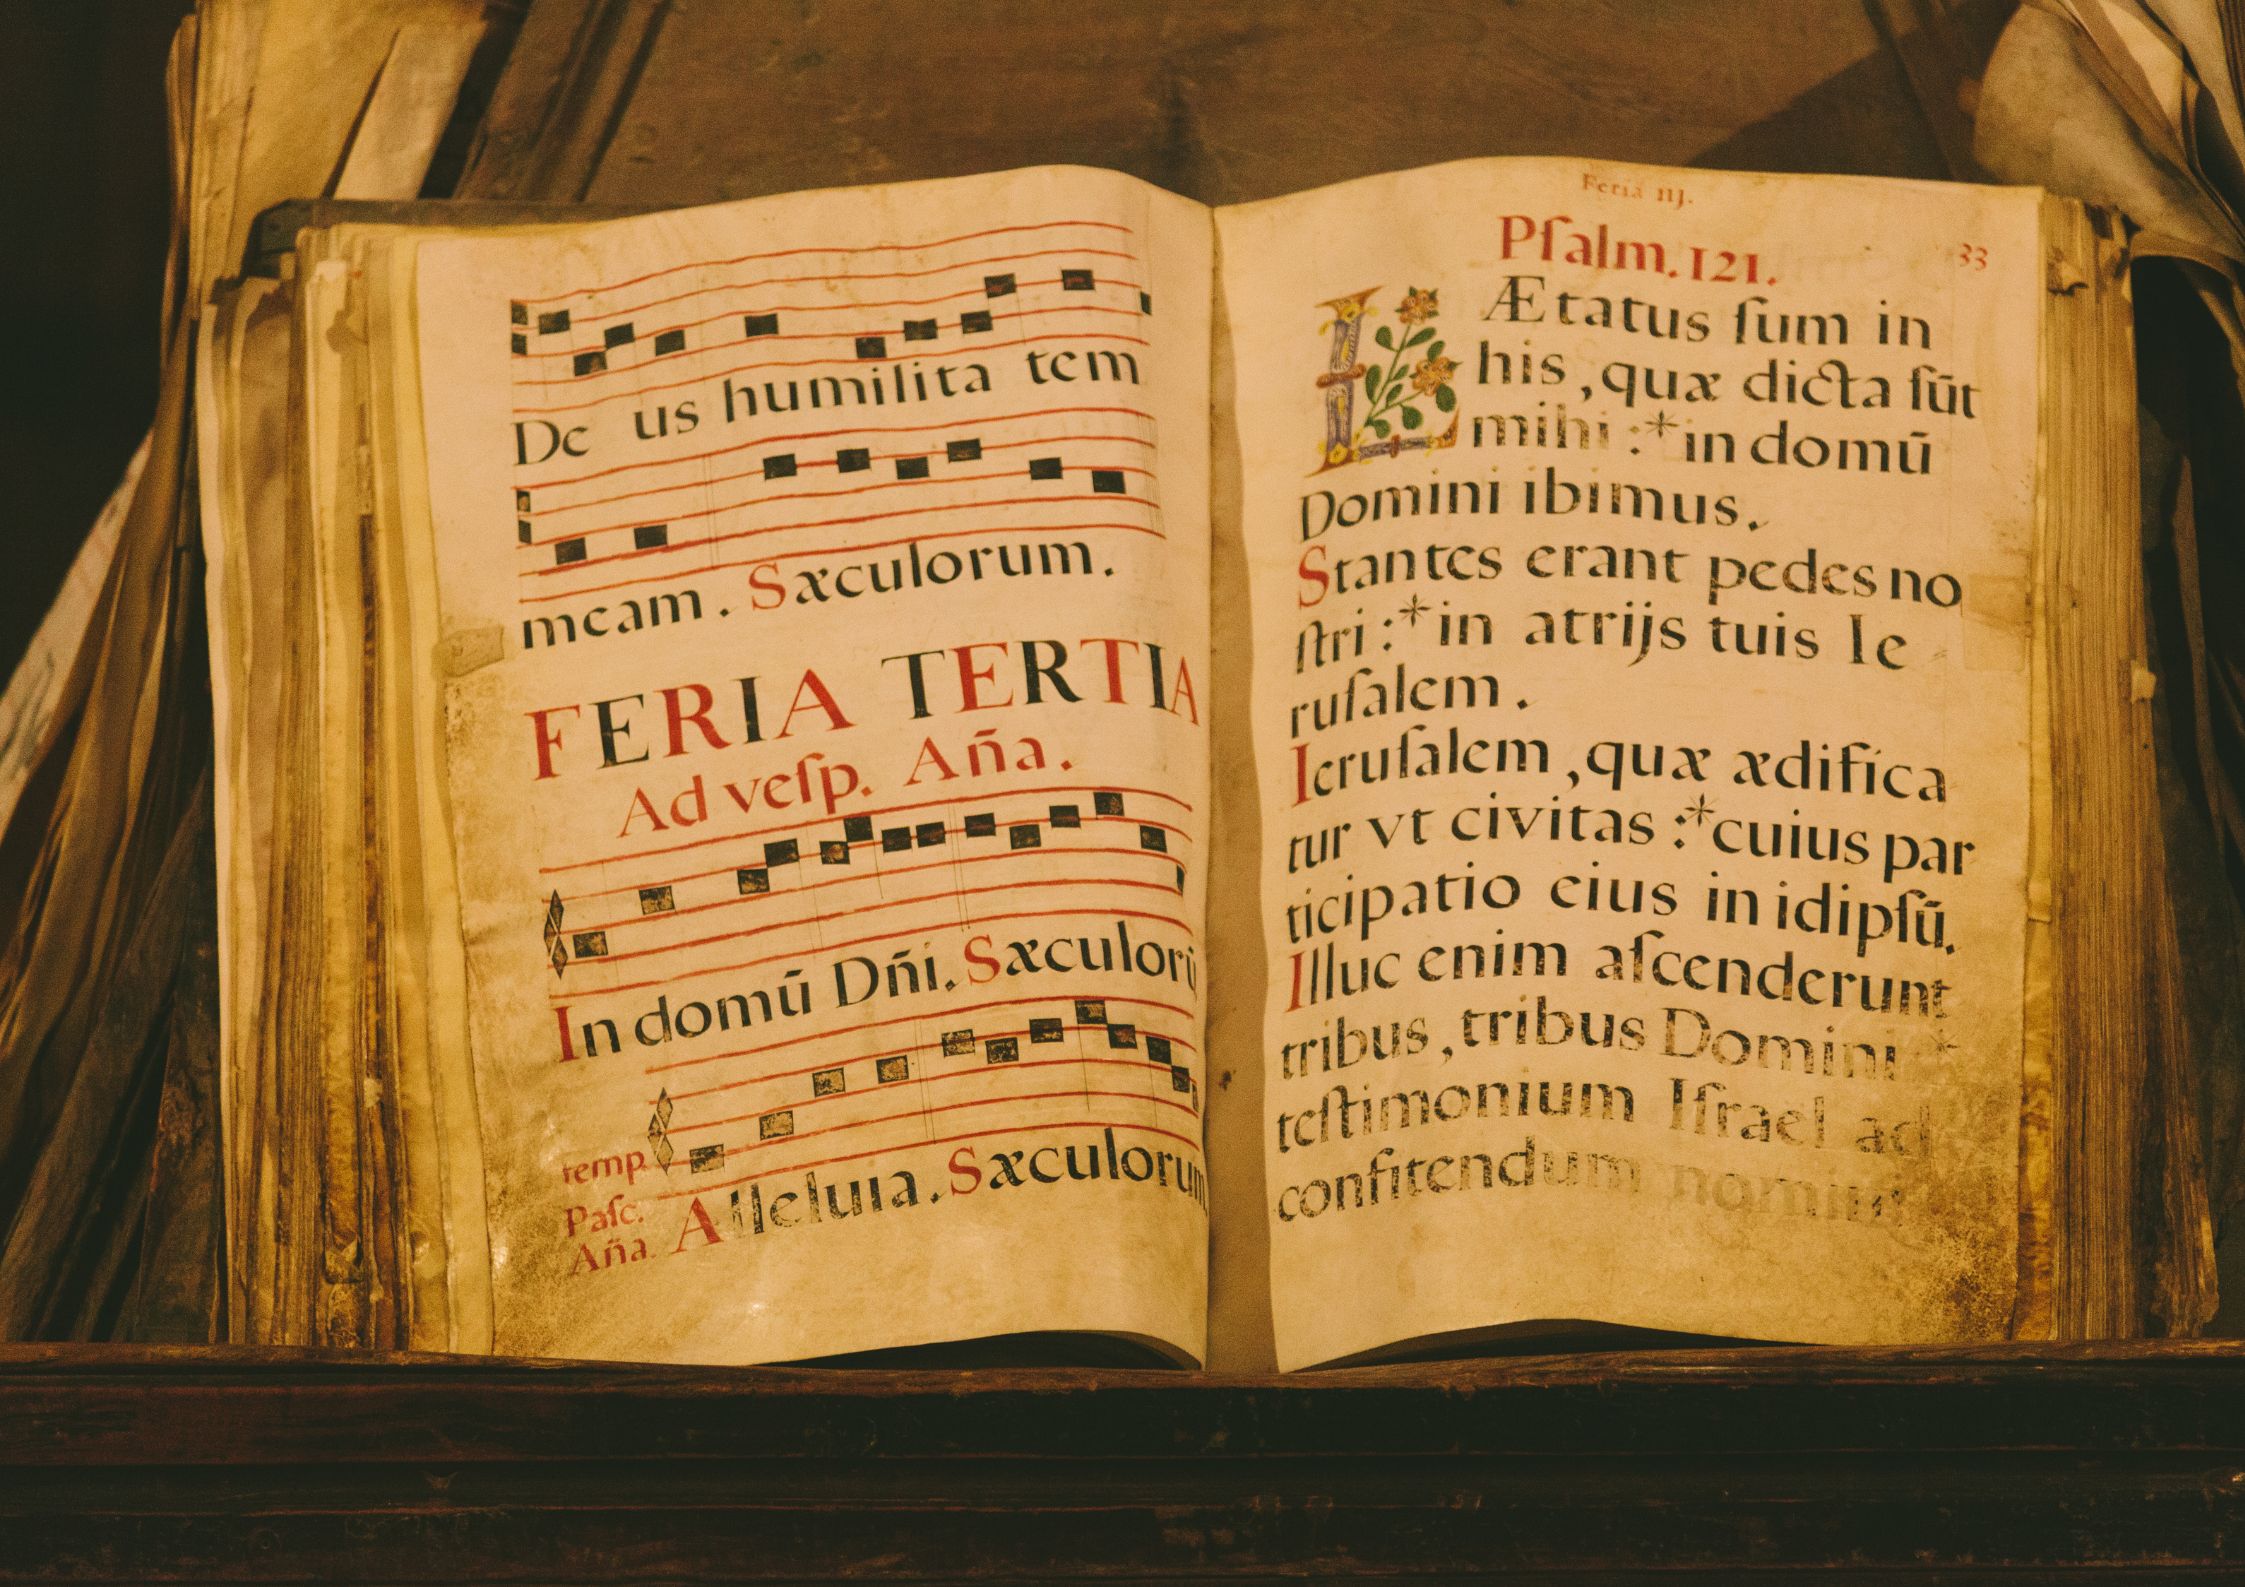 De us humilita tem
meam. Sæculorum.
FERIA TERTIA
Ad veſp. Aña.
In domū Dñi. Sæculorū
temp.
Paſc.
Aña. Alleluia. Sæculorum
Feria iij.
33
Pſalm. 121.
LÆtatus ſum in
his, quæ dicta ſūt
mihi :* in domū
Domini ibimus.
Stantes erant pedes no
ſtri :* in atrijs tuis Ie
ruſalem.
Ieruſalem, quæ ædifica
tur vt civitas :* cuius par
ticipatio eius in idipſū.
Illuc enim aſcenderunt
tribus, tribus Domini *
teſtimonium Iſrael ad
confitendum nomini